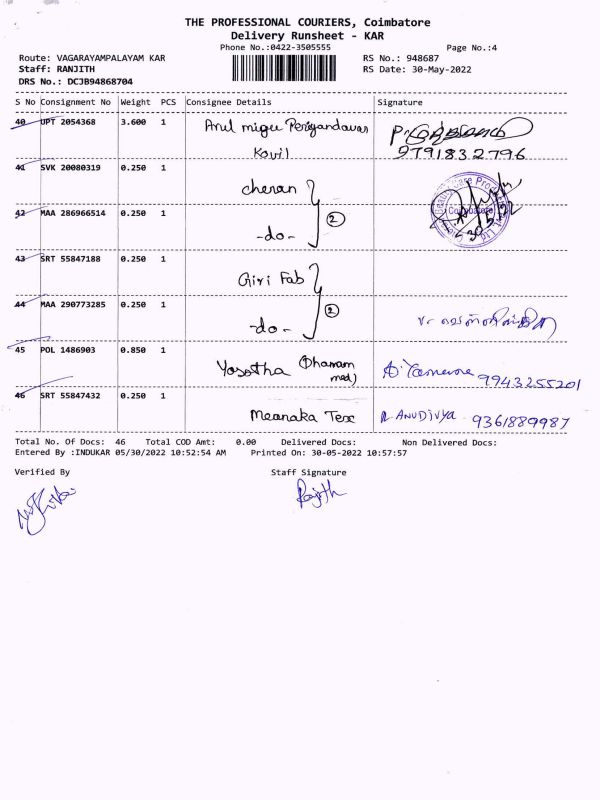 THE PROFESSIONAL COURIERS, Coimbatore
Delivery Runsheet - KAR
Phone No.:0422-3505555 Page No.:4
Route: VAGARAYAMPALAYAM KAR RS No.: 948687
Staff: RANJITH RS Date: 30-May-2022
DRS No.: DCJB94868704
S No Consignment No Weight PCS Consignee Details Signature
40 UPT 2054368 3.600 1 Arul migu Periyandavar
Kovil 9791832796
41 SVK 20080319 0.250 1 cheran
42 MAA 286966514 0.250 1 -do- 2
43 SRT 55847188 0.250 1 Giri Fab
44 MAA 290773285 0.250 1 -do- 2
45 POL 1486903 0.850 1 Yasotha (Dharam med) 9943255201
46 SRT 55847432 0.250 1 Meanaka Tex R ANUDIVYA 9361889987
Total No. Of Docs: 46 Total COD Amt: 0.00 Delivered Docs: Non Delivered Docs:
Entered By :INDUKAR 05/30/2022 10:52:54 AM Printed On: 30-05-2022 10:57:57
Verified By Staff Signature